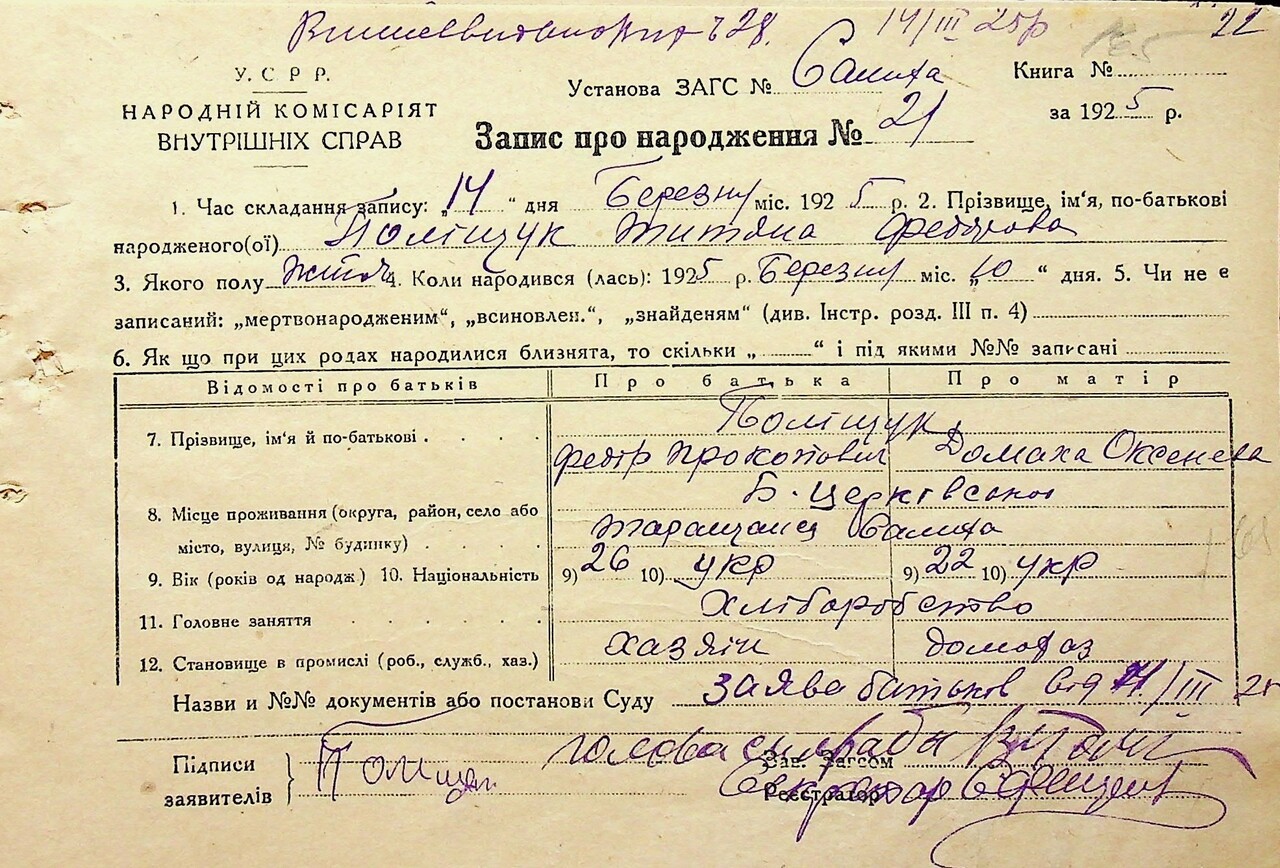 14/III 25р 22
165
У. С Р Р.
НАРОДНІЙ КОМІСАРІЯТ
ВНУТРІШНІХ СПРАВ
Установа ЗАГС № Салиха
Книга №
за 1925 р.
Запис про народження № 21
1. Час складання запису: „14“ дня Березня міс. 1925 р. 2. Прізвище, ім'я, по-батькові
народженого(ої) Поліщук Титяна Федорова
3. Якого полу жіноч 4. Коли народився (лась): 1925 р. Березня міс. „10“ дня. 5. Чи не є
записаний: „мертвонародженим“, „всиновлен.“, „знайденям“ (див. Інстр. розд. III п. 4)
6. Як що при цих родах народилися близнята, то скільки „ “ і під якими №№ записані
Відомості про батьків Про батька Про матір
Поліщук
7. Прізвище, ім'я й по-батькові
Федір Прокопович Домаха Оксенева
Б. Церківської
8. Місце проживання (округа, район, село або
місто, вулиця, № будинку)
Таращанськ Салиха
9. Вік (років од народж) 10. Національність 9) 26 10) укр 9) 22 10) укр
11. Головне заняття Хліборобство
12. Становище в промислі (роб., служб., хаз.) хазяїн домохаз
Назви и №№ документів або постанови Суду заява батьков від 14/III 25
Підписи
заявителів
Поліщук
голова сільради
Зав. Загсом
Секретар
Реєстратор